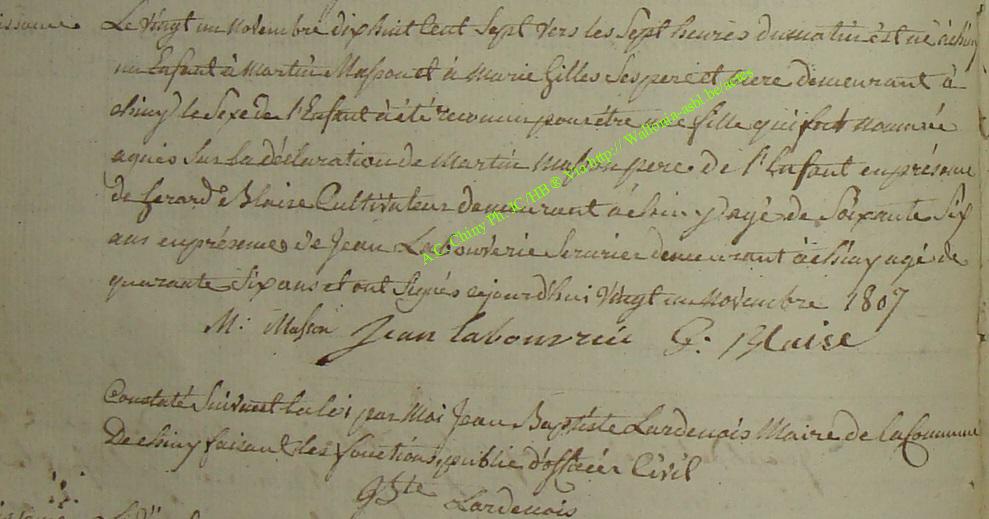 issance Le Vingt un Novembre dix huit Cent Sept Vers les Sept heures du matin est né à chiny
un Enfant à Martin Masson et à Marie Gilles Ses pere et mere demeurant à
chiny le Sexe de l'Enfant à été reconnu pour être une fille qui fut nommée
agnès Sur la déclaration de Martin Masson pere de l'Enfant en présence
de Gerard Blaise Cultivateur demeurant à chiny agé de Soixante Six
ans en présence de Jean Labouverie Serurier demeurant à chiny agé de
quarante Six ans et ont Signés cejourd'hui Vingt un Novembre 1807
M: Masson Jean labouvrie G: Blaise
Constaté Suivant la loi par Moi Jean Baptiste Lardenois Maire de la Commune
De chiny faisant les fonctions public d'officier Civil
Lardenois
A.C. Chiny Ph. JC/HB ® Via http:// Wallonia-asbl.be/actes